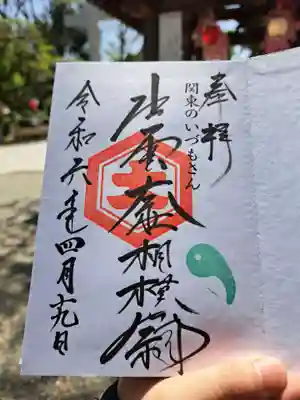 奉拝
関東のいづもさん
出雲大社相模分祠
令和六年四月十九日